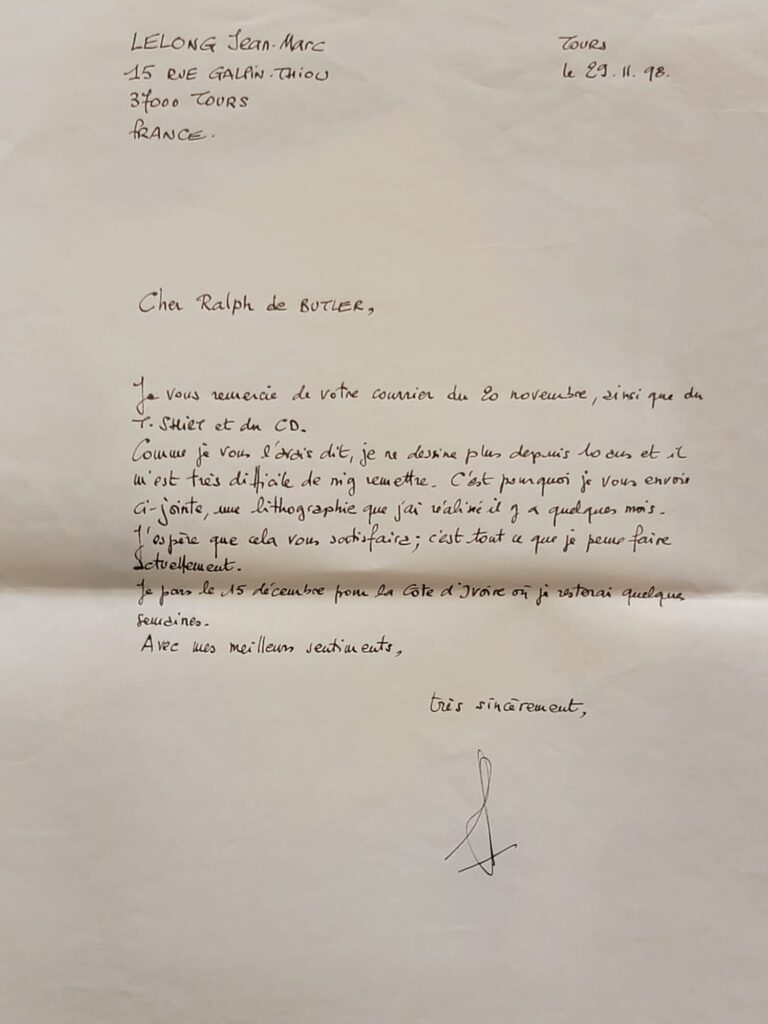 LELONG Jean-Marc
15 RUE GALPIN-THIOU
37000 TOURS
FRANCE.
TOURS
le 29.11.98.
Cher Ralph de BUTLER,
Je vous remercie de votre courrier du 20 novembre, ainsi que du
T.SHIRT et du CD.
Comme je vous l'avais dit, je ne dessine plus depuis 10 ans et il
m'est très difficile de m'y remettre. C'est pourquoi je vous envoie
ci-jointe, une lithographie que j'ai réalisé il y a quelques mois.
J'espère que cela vous satisfaira; c'est tout ce que je peux faire
actuellement.
Je pars le 15 décembre pour la Côte d'Ivoire où je resterai quelques
semaines.
Avec mes meilleurs sentiments,
très sincèrement,